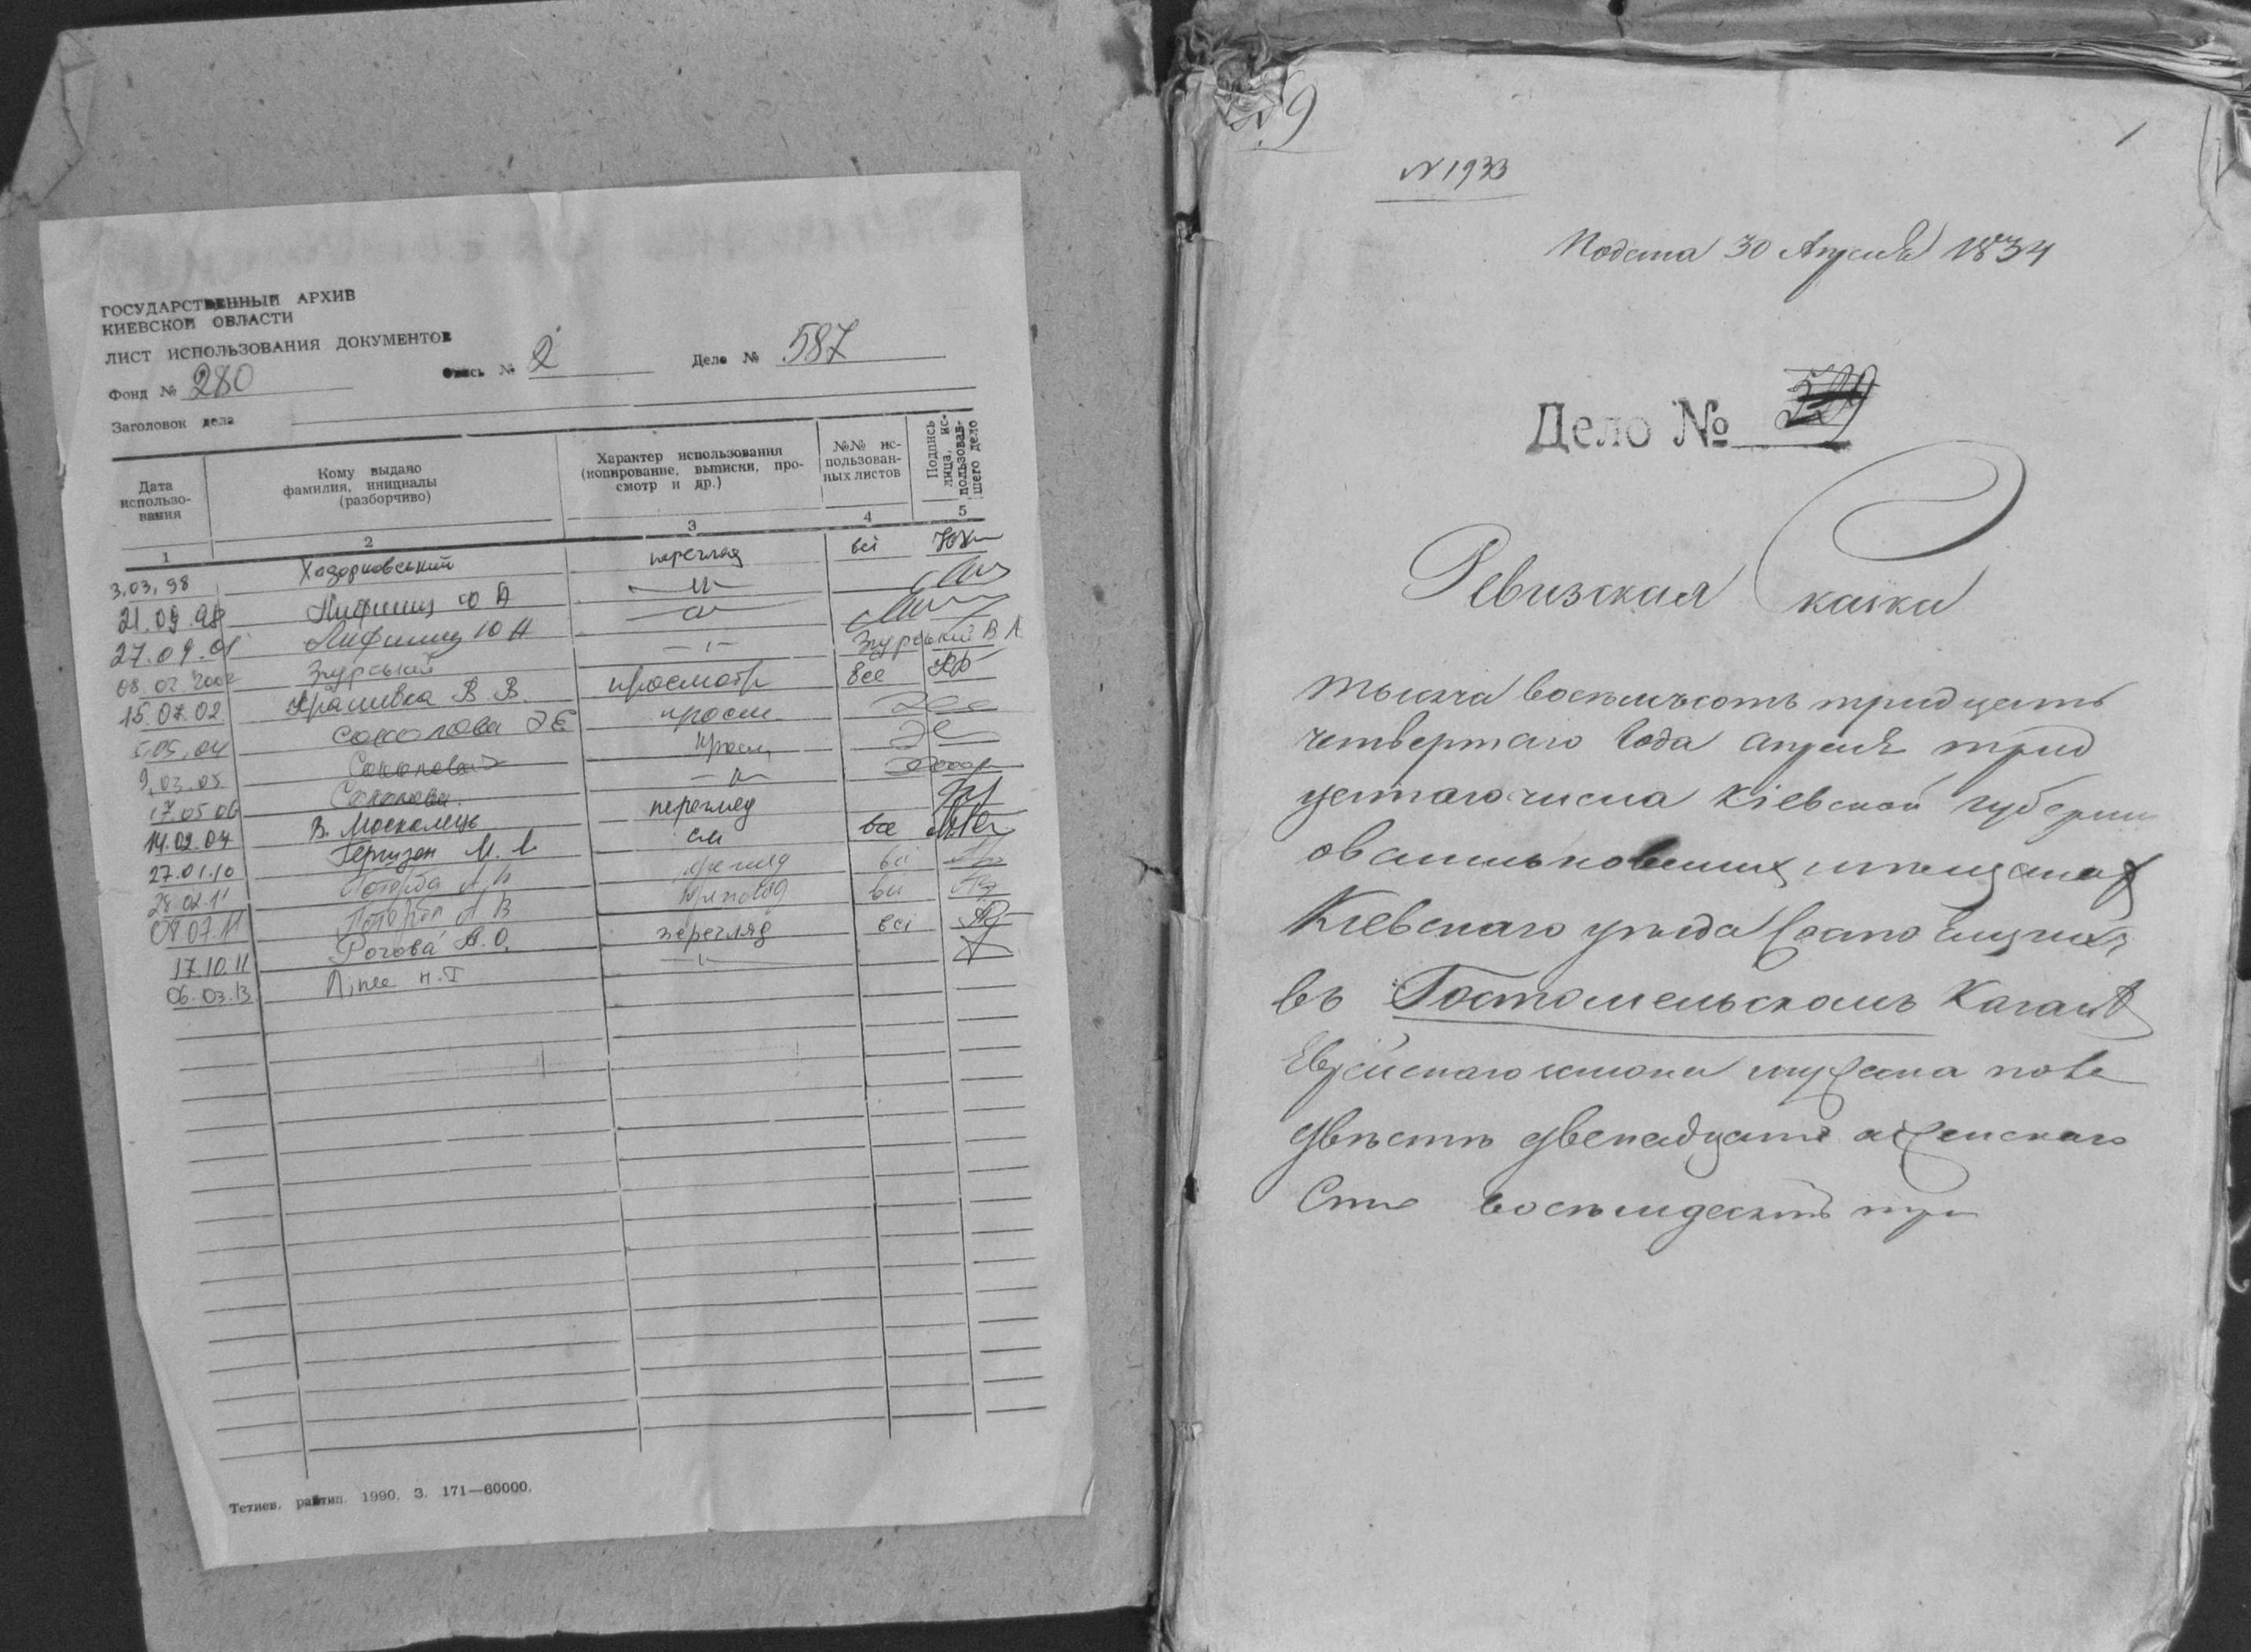 ГОСУДАРСТВЕННЫЙ АРХИВ
КИЕВСКОЙ ОБЛАСТИ
ЛИСТ ИСПОЛЬЗОВАНИЯ ДОКУМЕНТОВ
Фонд № 280 Опись № 2 Дело № 587
Заголовок дела
Дата использо-
вания
Кому выдано
фамилия, инициалы
(разборчиво)
Характер использования
(копирование, выписки, про-
смотр и др.)
№№ ис-
пользован-
ных листов
Подпись
лица, ис-
пользовав-
шего дело
1 2 3 4 5
3.03.98 перегляд всі
21.09.98 Лифшиц Ю А
27.09.01 Лифшиц Ю А
08.02.2002 Згурський Згурський В А
15.07.02 Крапивка В. В. просмотр все
5.05.04 Соколова просм.
9.03.05 Соколова просм
17.05.06 Соколова
14.02.07 В. Москалець перегляд
27.01.10 Герцзон М. см все
28.02.11 перегляд всі
08.07.11 всі
17.10.11 Рогова А. О. перегляд всі
06.03.13
Тетиев. райтип. 1990. З. 171—60000.
9
N 1933
1
Подана 30 Апреля 1834
Дело №
Ревизская Сказка
тысяча восемьсотъ тридцать
четвертаго года апреля трид
цетаго числа Кіевской губернии
о васильковских мещанах
Кіевскаго уезда Состоящих
въ Гостомельскомъ Кагале
Еврейскаго мужеска пола
двѣсти двенадцать а женскаго
Сто восемдесятъ три